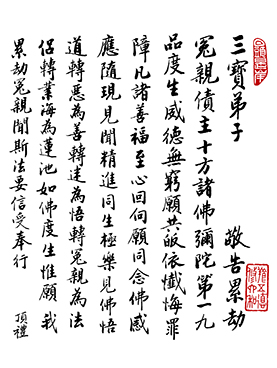 三寶弟子 敬告累劫
冤親債主十方諸佛彌陀第一九
品度生威德無窮願共皈依懺悔罪
障凡諸善福至心回向願同念佛感
應隨現見聞精進同生極樂見佛悟
道轉惡為善轉迷為悟轉冤親為法
侶轉業海為蓮池如佛度生惟願 我
累劫冤親聞斯法要信受奉行 頂禮